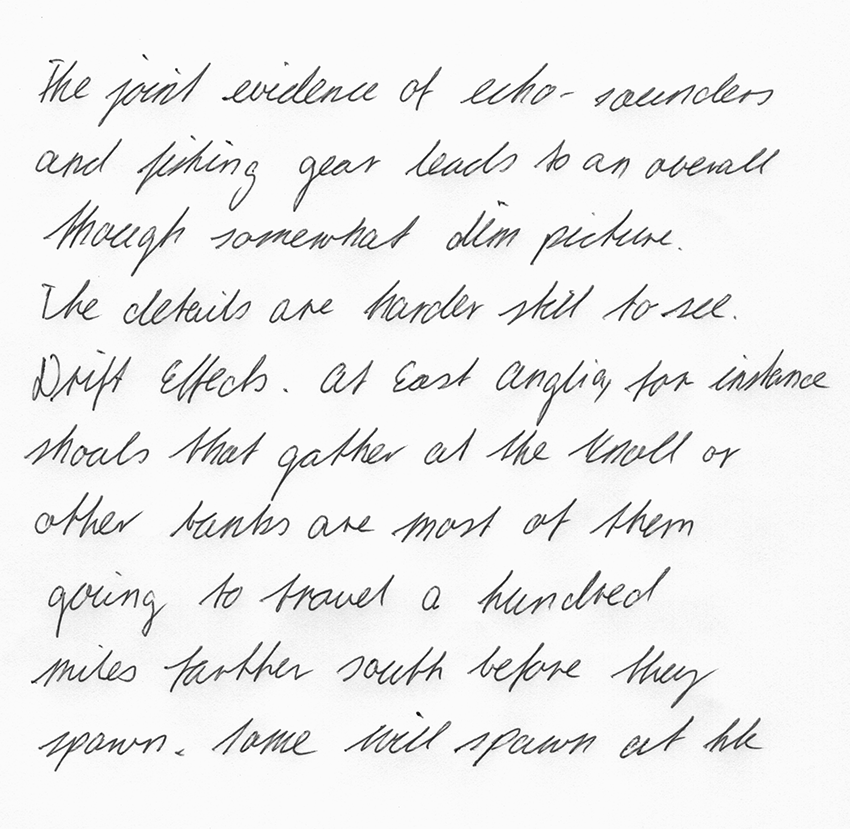 The joint evidence of echo-sounders
and fishing gear leads to an overall
though somewhat dim picture.
The details are harder still to see.
Drift Effects. At East Anglia, for instance
shoals that gather at the Knoll or
other banks are most of them
going to travel a hundred
miles farther south before they
spawn. Some will spawn at